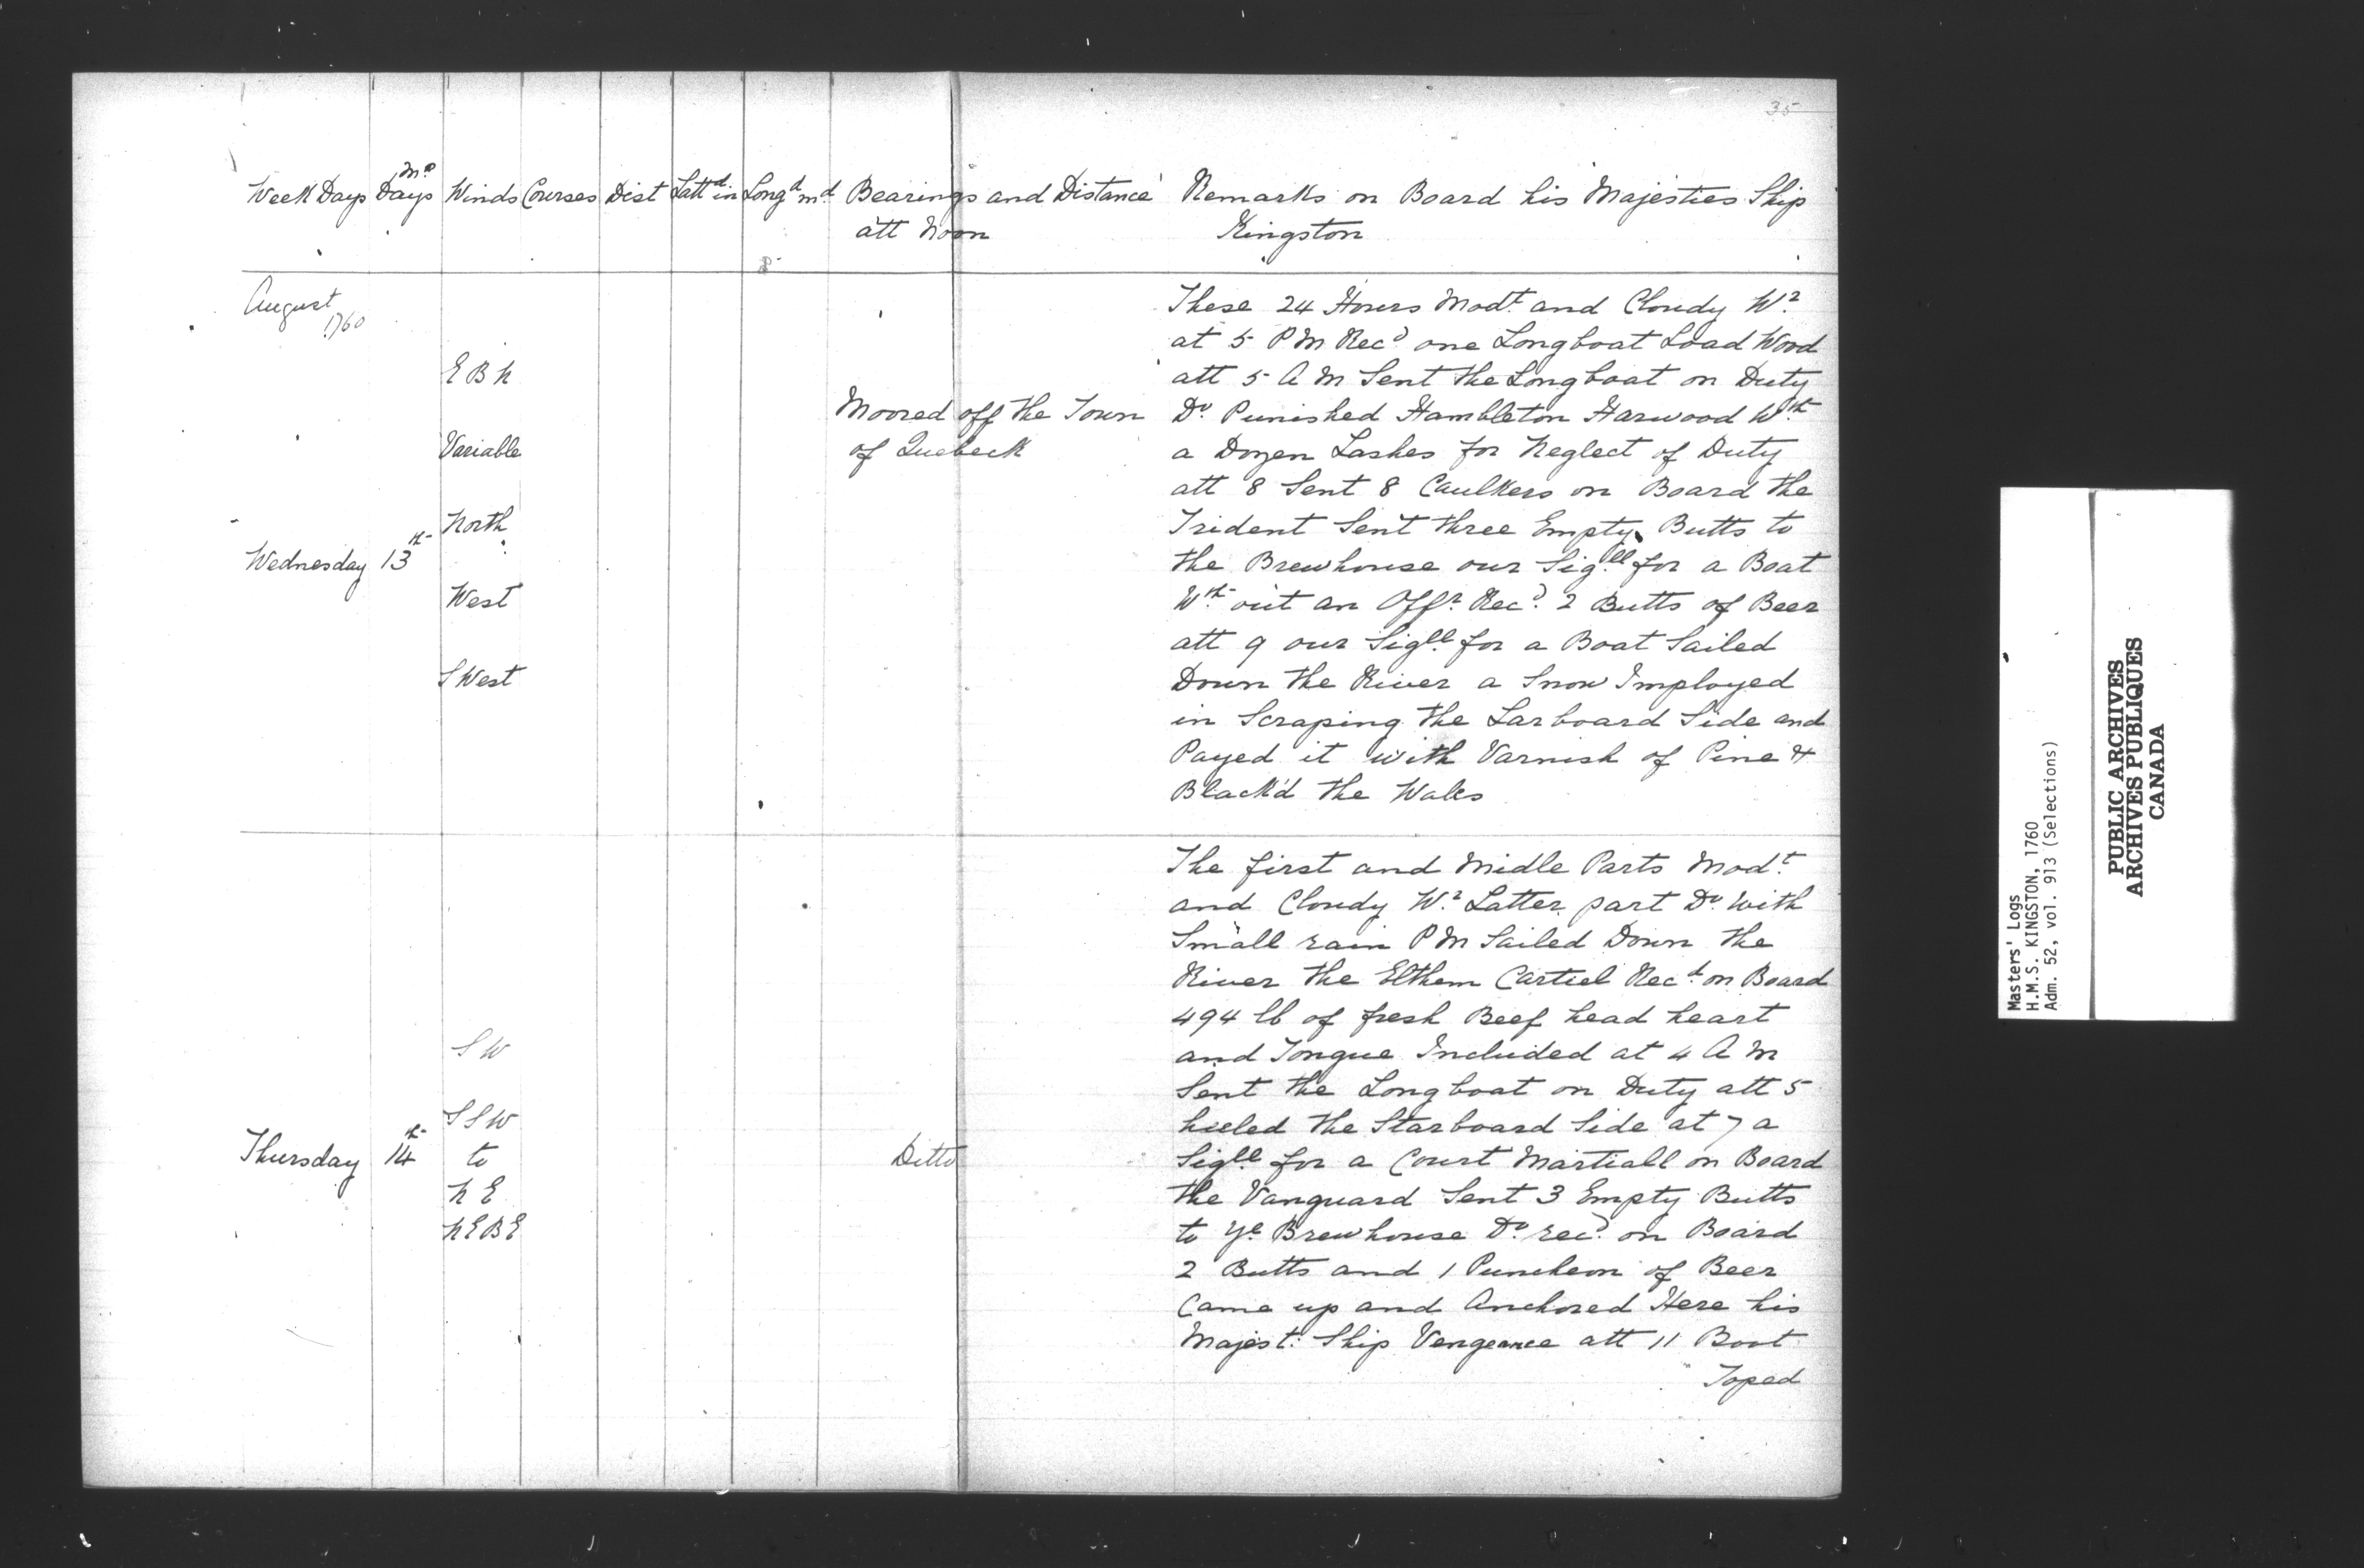 35
Week Days Mo Days Winds Courses Dist Lattd in Longd md Bearings and Distance att Noon Remarks on Board his Majesties Ship
Kingston
August
1760
Wednesday 13th
E B N
Variable
North
West
S West
Moored off the Town
of Quebeck
These 24 Hours Modt and Cloudy Wr
at 5 PM Recd one Longboat Load Wood
att 5 A M Sent the Longboat on Duty
Do Punished Hambleton Harwood Wth
a Dozen Lashes for Neglect of Duty
att 8 Sent 8 Caulkers on Board the
Trident Sent three Empty Butts to
the Brewhouse our Sigll for a Boat
Wth out an Offr Recd 2 Butts of Beer
att 9 our Sigll for a Boat Sailed
Down the River a Snow Imployed
in Scraping the Larboard Side and
Payed it with Varnish of Pine &
Black'd the Wales
Thursday 14th
S W
S S W
to
N E
N E B E
Ditto
The first and Midle Parts Modt
and Cloudy Wr Latter part Do with
Small rain PM Sailed Down the
River the Elthem Cartiel Recd on Board
494 lb of fresh Beef head heart
and Tongue Included at 4 A M
Sent the Longboat on Duty att 5
heeled the Starboard Side at 7 a
Sigll for a Court Martiall on Board
the Vanguard Sent 3 Empty Butts
to ye Brewhouse Do recd on Board
2 Butts and 1 Puncheon of Beer
Came up and Anchored Here his
Majest: Ship Vengeance att 11 Boot
Toped
Masters' Logs
H.M.S. KINGSTON, 1760
Adm. 52, vol. 913 (Selections)
PUBLIC ARCHIVES
ARCHIVES PUBLIQUES
CANADA